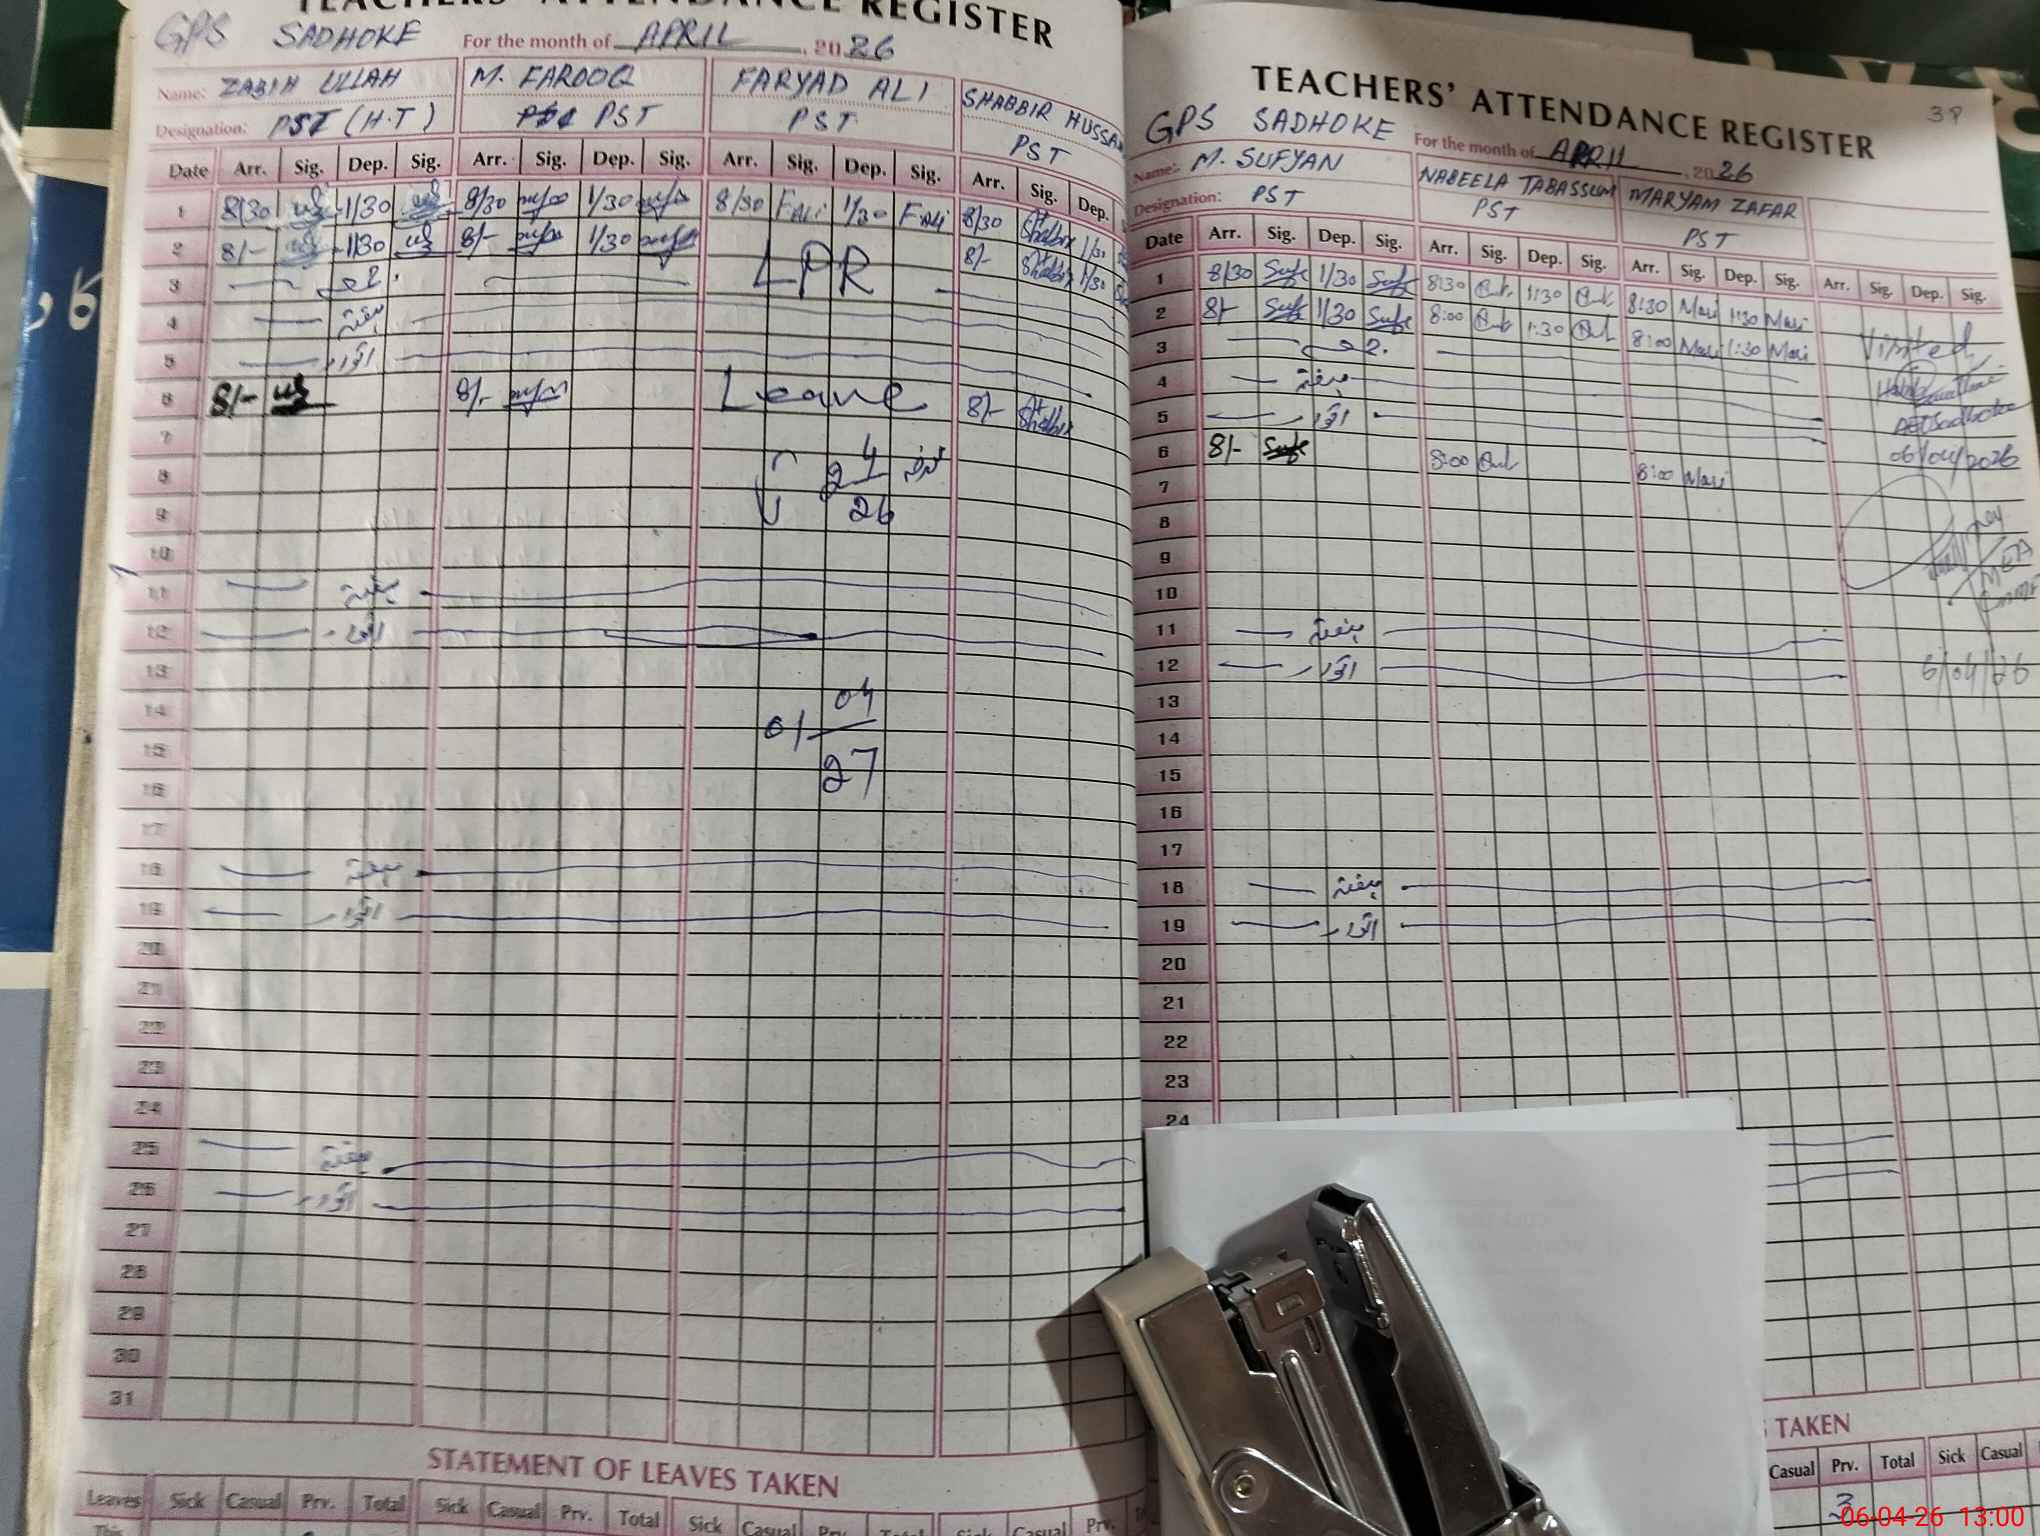 TEACHERS' ATTENDANCE REGISTER
GPS SADHOKE For the month of APRIL, 2026
Name: ZABIH ULLAH M. FAROOQ FARYAD ALI SHABBIR HUSSA
Designation: PST (H.T) PST PST PST
Date Arr. Sig. Dep. Sig. Arr. Sig. Dep. Sig. Arr. Sig. Dep. Sig. Arr. Sig. Dep.
1 8/30 1/30 8/30 1/30 8/30 F.Ali 1/30 F.Ali 8/30 Shabbir 1/30
2 8/- 1/30 8/- 1/30 LPR 8/- Shabbir 1/30
3
4 ہفتہ
5 اتوار
6 8/- 8/- Leave 8/- Shabbir
7
8 2 4 26
9
10
11 ہفتہ
12 اتوار
13
14 01 04 27
15
16
17
18 ہفتہ
19 اتوار
20
21
22
23
24
25 ہفتہ
26 اتوار
27
28
29
30
31
STATEMENT OF LEAVES TAKEN
Leaves Sick Casual Prv. Total Sick Casual Prv. Total Sick Casual Prv. Total Sick Casual Prv.
This
39
TEACHERS' ATTENDANCE REGISTER
GPS SADHOKE For the month of APRIL, 2026
Name: M. SUFYAN NABEELA TABASSUM MARYAM ZAFAR
Designation: PST PST PST
Date Arr. Sig. Dep. Sig. Arr. Sig. Dep. Sig. Arr. Sig. Dep. Sig. Arr. Sig. Dep. Sig.
1 8/30 Sufe 1/30 Sufe 8:30 1:30 8:30 Mari 1:30 Mari
2 8/- Sufe 1/30 Sufe 8:00 1:30 8:00 Mari 1:30 Mari Visited
3
4 ہفتہ
5 اتوار
6 8/- Sufe 8:00 8:00 Mari 06/04/2026
7
8
9
10 MEA
11 ہفتہ
12 اتوار 6/04/26
13
14
15
16
17
18 ہفتہ
19 اتوار
20
21
22
23
24
TAKEN
Casual Prv. Total Sick Casual
3
06-04-26 13:00